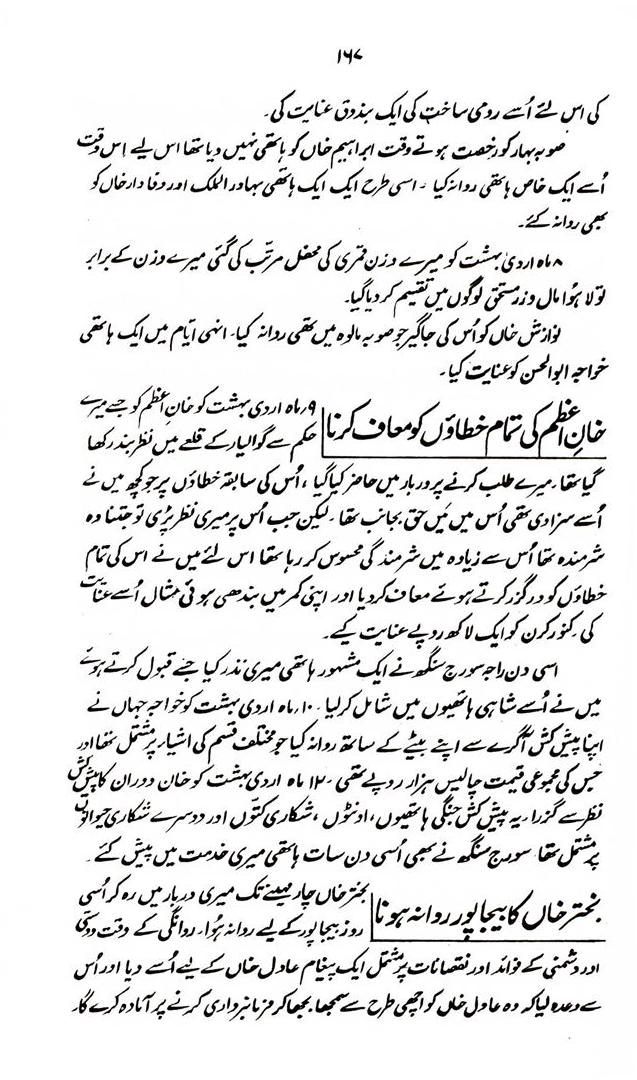 ۱۶۷
کی اس لئے اُسے رومی ساخت کی ایک بندوق عنایت کی۔
صوبہ بہار کو رخصت ہوتے وقت ابراہیم خاں کو ہاتھی نہیں دیا تھا اس لیے اس وقت
اُسے ایک خاص ہاتھی روانہ کیا۔ اسی طرح ایک ایک ہاتھی بہادر الملک اور وفادار خاں کو
بھی روانہ کئے۔
۸ ماہ اردی بہشت کو میرے وزن قمری کی محفل مرتّب کی گئی میرے وزن کے برابر
تولا ہوُا مال و زر مستحق لوگوں میں تقسیم کر دیا گیا۔
نوازش خاں کو اُس کی جاگیر جو صوبہ مالوہ میں تھی روانہ کیا۔ انہی ایّام میں ایک ہاتھی
خواجہ ابوالحسن کو عنایت کیا۔
خانِ اعظم کی تمام خطاؤں کو معاف کرنا
۹ ماہ اردی بہشت کو خانِ اعظم کو جسے میرے
حکم سے گوالیار کے قلعے میں نظر بند رکھا
گیا تھا۔ میرے طلب کرنے پر دربار میں حاضر کیا گیا، اُس کی سابقہ خطاؤں پر جو کچھ میں نے
اُسے سزا دی تھی اُس میں مَیں حق بجانب تھا۔ لیکن جب اُس پر میری نظر پڑی تو جتنا وہ
شرمندہ تھا اُس سے زیادہ میں شرمندگی محسوس کر رہا تھا اس لئے میں نے اس کی تمام
خطاؤں کو درگزر کرتے ہوئے معاف کر دیا اور اپنی کمر میں بندھی ہوئی شال اُسے عنایت
کی۔ کنور کرن کو ایک لاکھ روپے عنایت کیے۔
اسی دن راجہ سورج سنگھ نے ایک مشہور ہاتھی میری نذر کیا جسے قبول کرتے ہوئے
میں نے اُسے شاہی ہاتھیوں میں شامل کر لیا۔ ۱۰ ماہ اردی بہشت کو خواجہ جہاں نے
اپنا پیش کش آگرے سے اپنے بیٹے کے ساتھ روانہ کیا جو مختلف قسم کی اشیا پر مشتمل تھا اور
جس کی مجموعی قیمت چالیس ہزار روپے تھی۔ ۱۲ ماہ اردی بہشت کو خان دوراں کا پیش کش
نظر سے گزرا۔ یہ پیش کش جنگی ہاتھیوں، اونٹوں، شکاری کتّوں اور دوسرے شکاری حیوانوں
پر مشتمل تھا۔ سورج سنگھ نے بھی اُسی دن سات ہاتھی میری خدمت میں پیش کئے۔
بختر خاں کا بیجاپور روانہ ہونا
بختر خاں چار مہینے تک میری دربار میں رہ کر اُسی
روز بیجاپور کے لیے روانہ ہوُا۔ روانگی کے وقت دوستی
اور دشمنی کے فوائد اور نقصانات پر مشتمل ایک پیغام عادل خاں کے لیے اُسے دیا اور اُس
سے وعدہ لیا کہ وہ عادل خاں کو اچھی طرح سے سمجھا بجھا کر فرمانبرداری کرنے پر آمادہ کرے گا۔